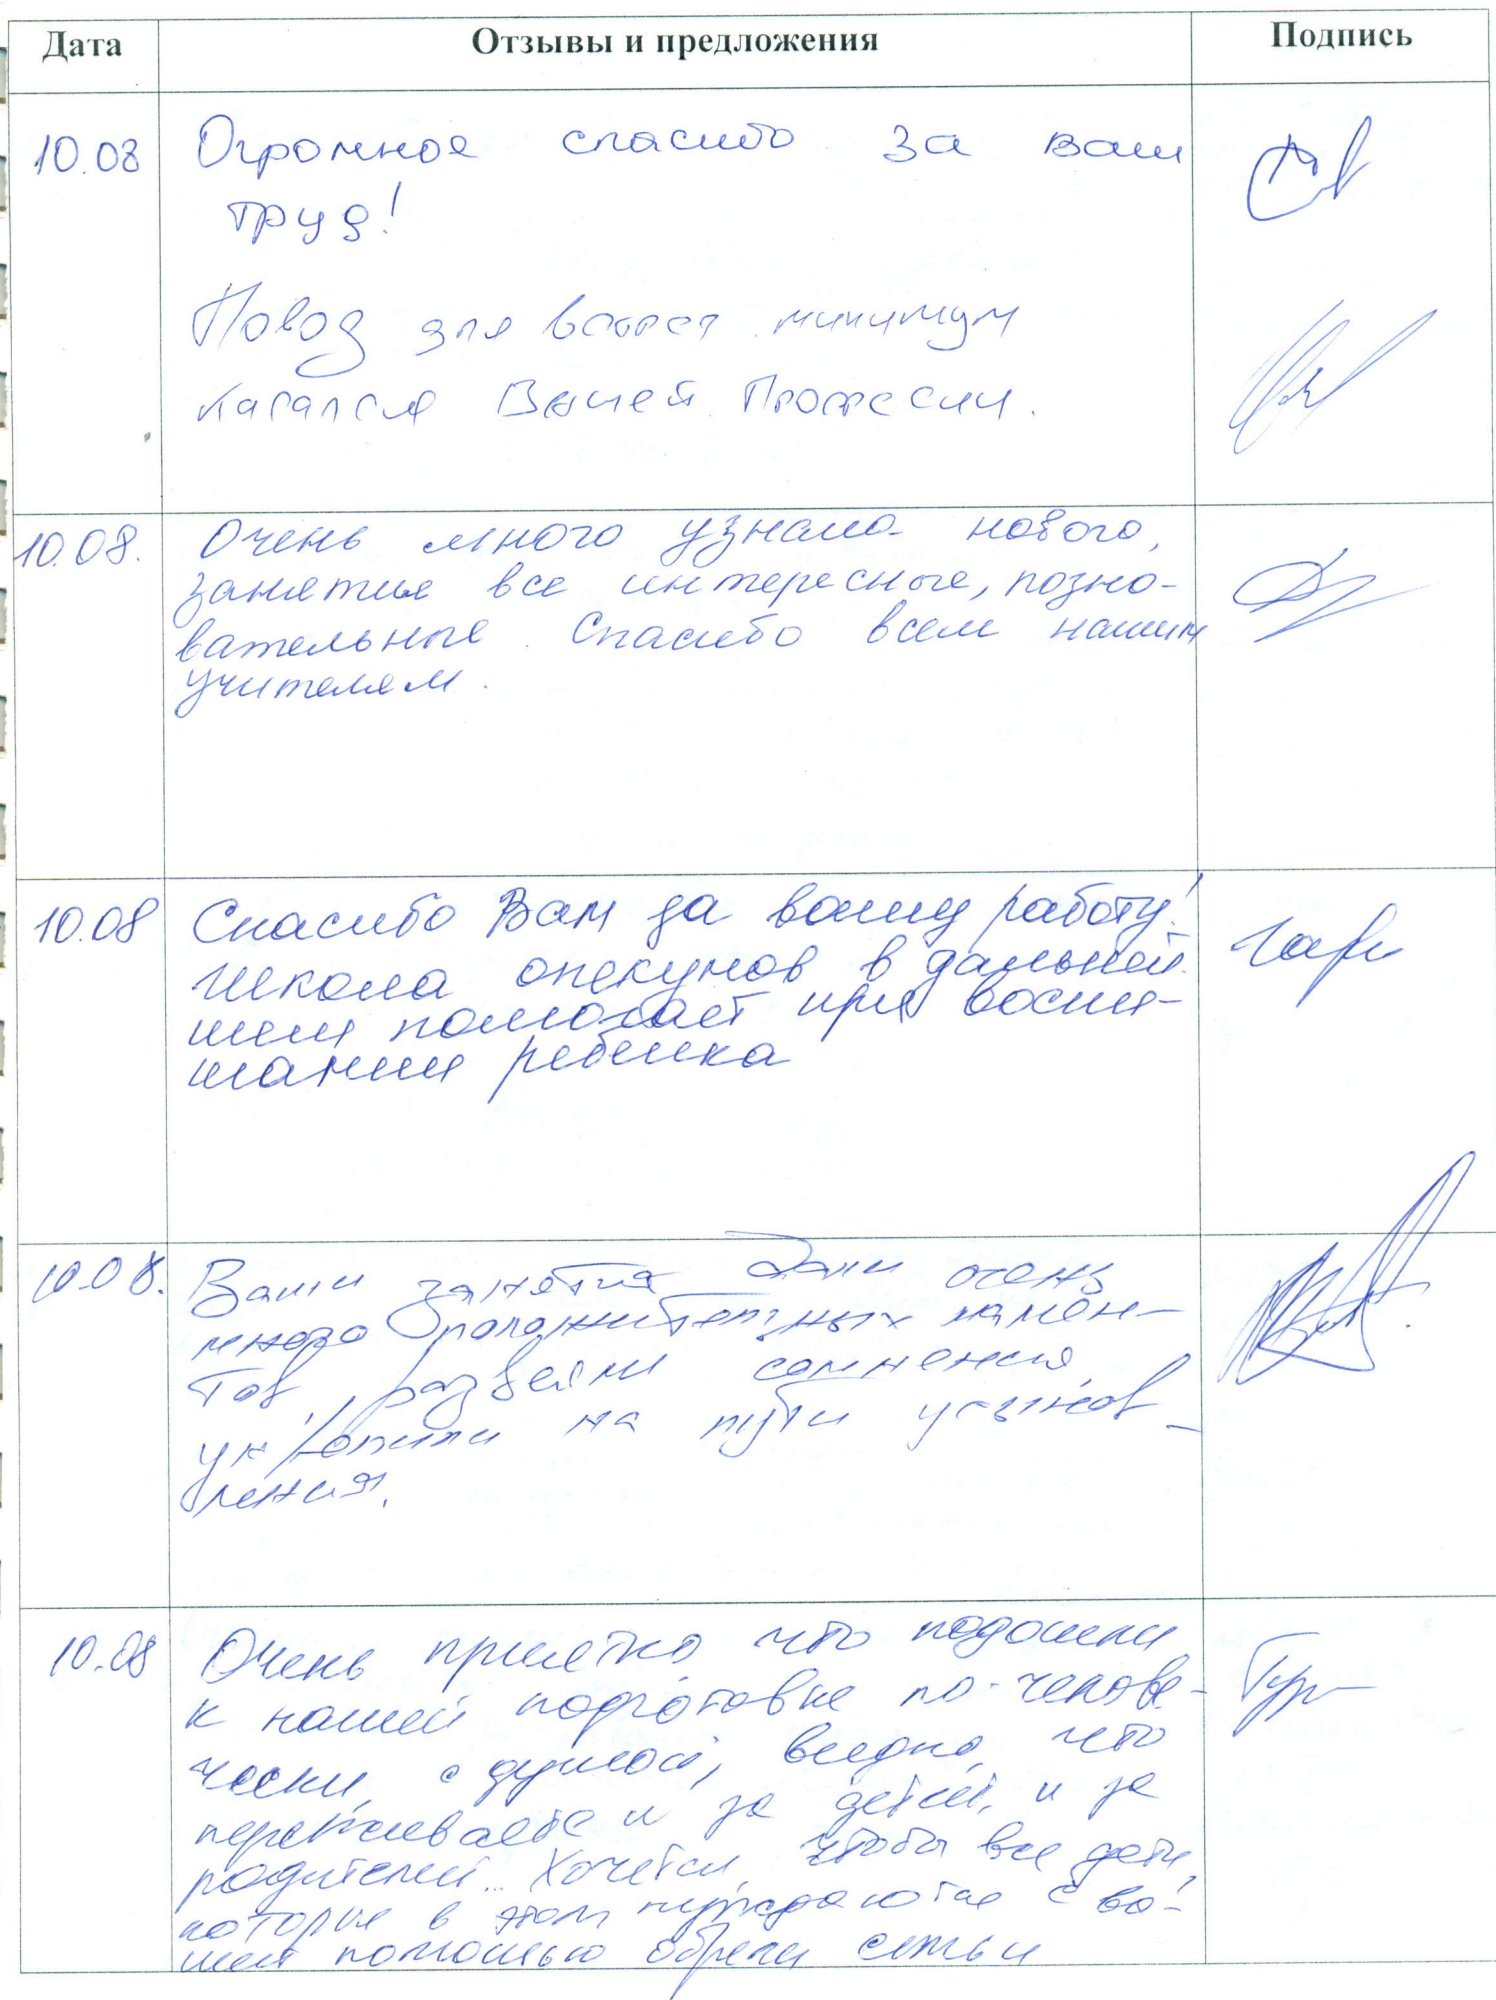 Дата Отзывы и предложения Подпись
10.08 Огромное спасибо за ваш
труд!
Повод для встреч минимум
касался Вашей Профессии.
10.08. Очень много узнала нового,
занятия все интересные, позно-
вательные. Спасибо всем нашим
учителям.
10.08 Спасибо Вам за вашу работу!
Школа опекунов в дальней
шем помогает при воспи-
тании ребенка
10.08. Ваши занятия дали очень
много положительных момен-
тов, развеяли сомнения,
укрепили на пути усынов-
ления.
10.08 Очень приятно что подошли
к нашей подготовке по-челове-
чески, с душой, видно, что
переживаете и за детей, и за
родителей. Хочется, чтобы все дети,
которые в этом нуждаются с ва-
шей помощью обрели семьи